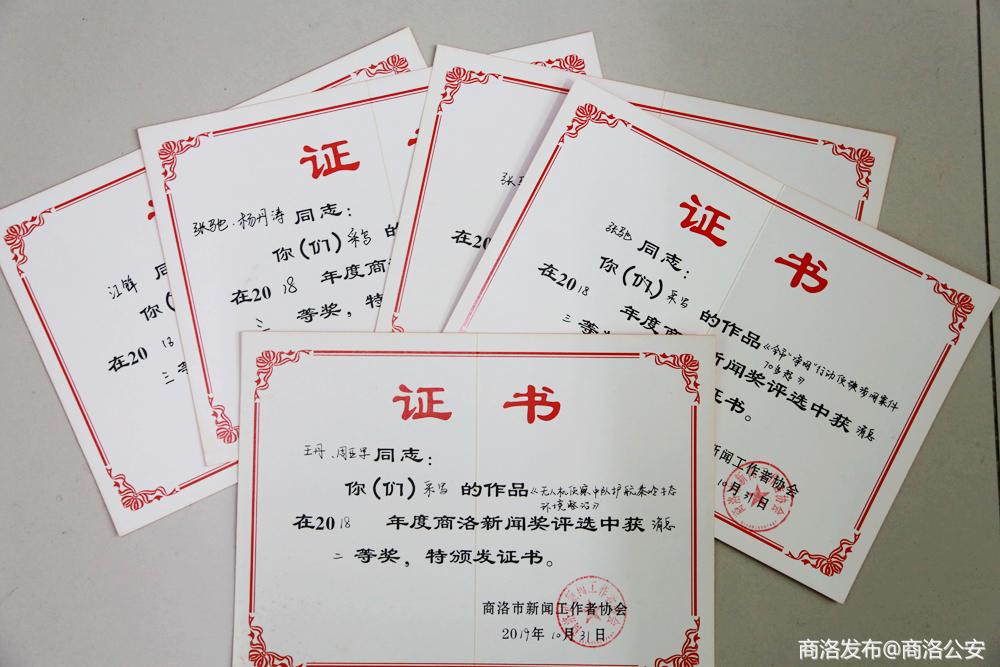 江锋 同
你(
在20 18
三等
证
张弛、杨丹涛 同志：
你(们) 采写 的
在20 18 年度商
三 等奖，特
张
在20
证书
张弛 同志：
你(们) 采写 的作品《全市“净网”行动侦破涉网案件
70多起》
在20 18 年度商 新闻奖评选中获 消息
三 等奖 证书。
新闻工作者协会
10月31日
证书
王丹、周亚军 同志：
你(们) 采写 的作品《无人机侦察中队护航秦岭生态
环境整治》
在20 18 年度商洛新闻奖评选中获 消息
二 等奖，特颁发证书。
商洛市新闻工作者协会
2019年10月31日
商洛发布@商洛公安